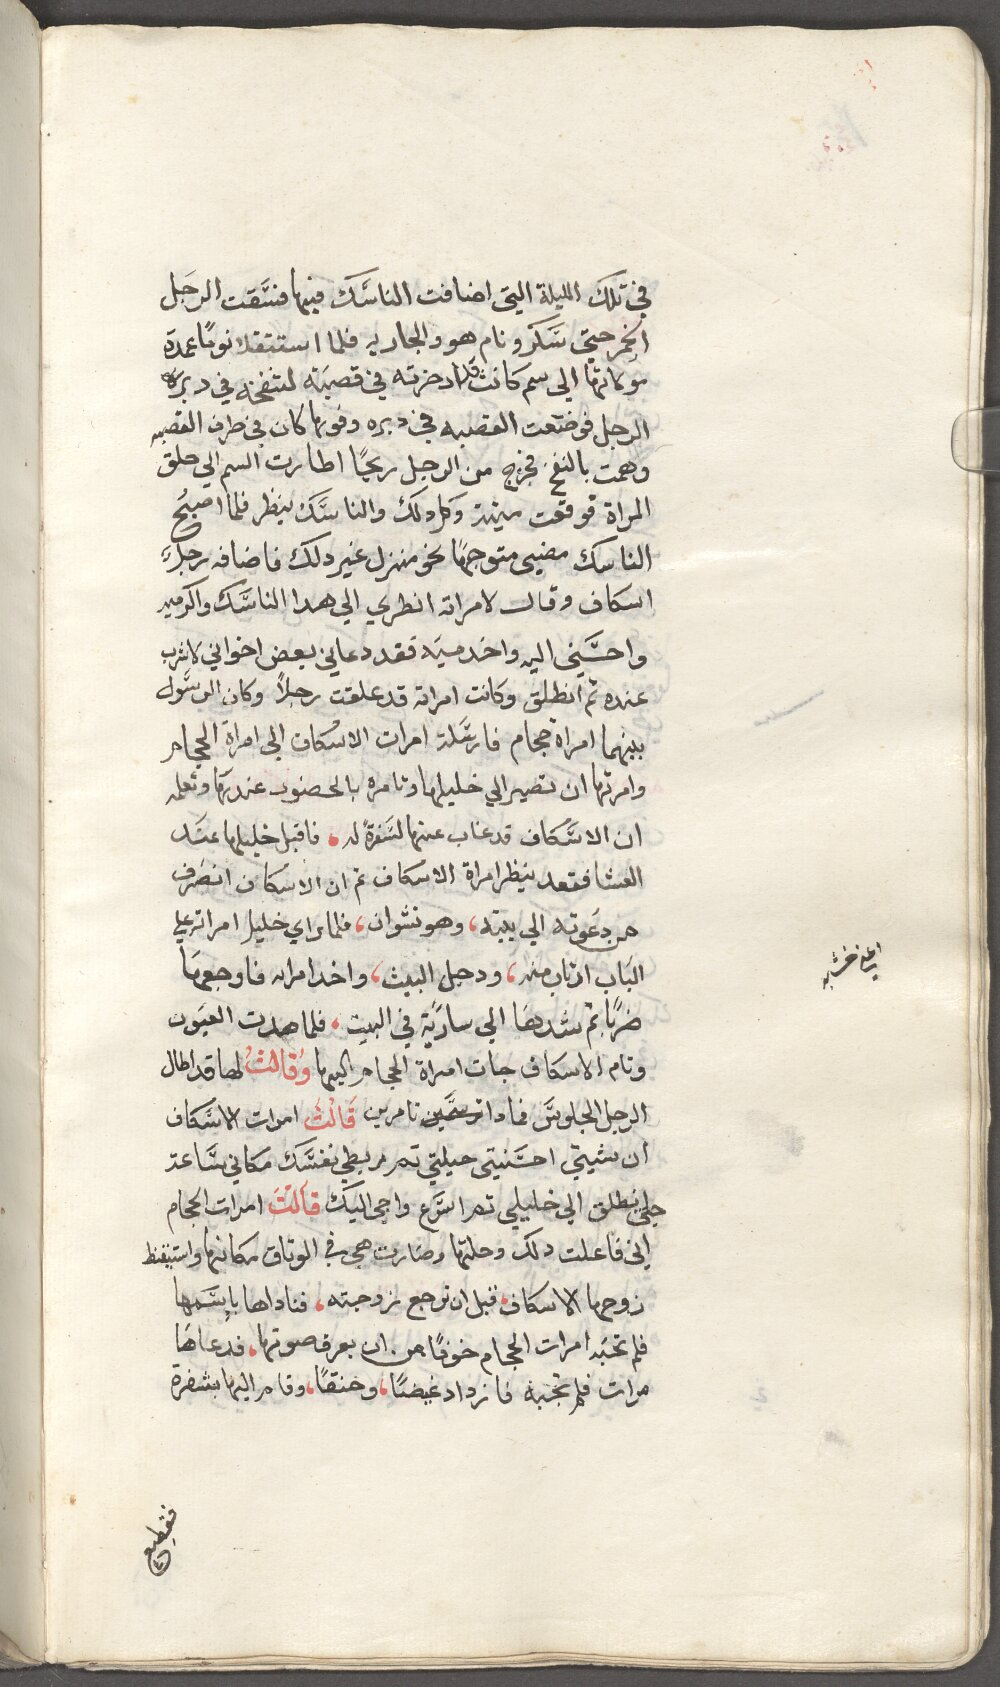 في تلك الليلة التي اضافت الناسك فيها فسقت الرجل
الخمر حتى سكر ونام هو والجاريه فلما استتقلا نومًا عمدة
مولاتها الي سم كانت قد ادخرته في قصبة لتنفخه في دبره
الرجل فوضعت القصبه في دبره وفوها كان في طرف القصبه
وهمت بالنفخ فخرج من الرجل ريحًا اطارت السم الي حلق
المراة فوقعت ميتة وكل دلك والناسك ينظر فلما اصبح
الناسك مضي متوجهًا نحو منزل غير دلك فاضافه رجلٌ
اسكاف وقال لامراته انظري الي هدا الناسك واكرميه
واحسني اليه واخدميه فقد دعاني بعض اخواني لاشرب
عنده ثم انطلق وكانت امراته قد علقت رجلاً وكان الرسول
بينهما امراة حجام فارسلة امرات الاسكاف الي امراة الحجام
وامرتها ان تصير الي خليلها وتامره بالحضور عندها وتعلمه
ان الاسكاف قد غاب عنها لسفرةٍ له، فاقبل خليلها عند
العشا فقعد ينظر امراة الاسكاف ثم ان الاسكاف انصرف
من دعوته الي بيته، وهو نشوان، فلما راي خليل امراته علي
الباب ارتاب منه، ودخل البيت، واخد امراته فاوجعها
ضربًا ثم شدها الي سارية في البيت، فلما هدت العيون
ونام الاسكاف جات امراة الحجام اليها وقالت لها قد اطال
الرجل الجلوس فمادا ترسمين تامرين قالت امرات الاسكاف
ان شيتي احسنيتي حيلتي ثم ربطي نفسك مكاني ساعة
حتى انطلق الي خليلي ثم اسرع واجي اليك قالت امرات الحجام
اني فاعلت دلك وحلتها وصارت هي في الوتاق مكانها واستيقظ
زوجها الاسكاف قبل ان توجع زوجته، فناداها باسمها
فلم تجبه امرات الحجام خوفًا من ان يعرف صوتها، فدعاها
مرات فلم تجبه فازداد غيضًا، وحنقًا، وقام اليها بشفرة
اي علي خشبه
فقطع